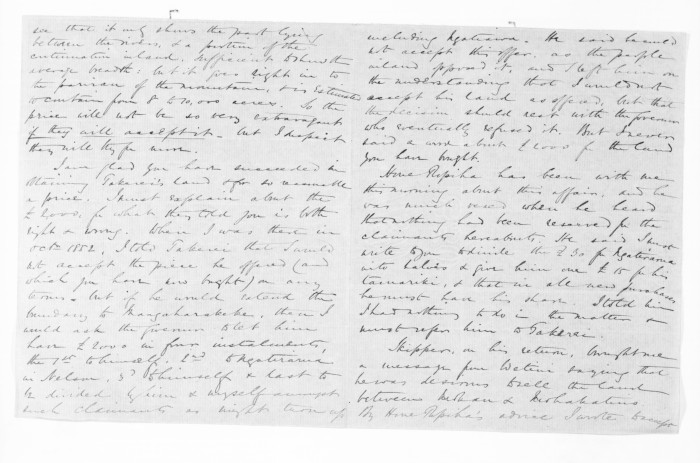 see that it only shows the part lying
between the rivers, & a portion of the
continuation inland, sufficient to show the
average breadth: but it goes right in to
the of the mountain, & is estimated
to contain from 8 to 10,000 acres. So the
price will not be so very extravagant
if they will accept it - but I expect
they will try for more.
I am glad you have succeeded in
obtaining Takerei's land for so reasonable
a price. I must explain about the
£2000, for what they told you is both
right & wrong. When I was there in
Octr. 1852, I told Takerei that I would
not accept the piece he offered (and
which you have now bought) on any
terms - but if he would extend the
boundary to then I
would ask the Governor to let him
have £2000 in four instalments,
the 1st to himself - 2nd to Ngatirarua
in Nelson, 3d to himself & last to
be divided by him & myself amongst
such claimants as might turn up
including Ngatiawa. He said he could
not accept this offer, as the people
inland opposed it, and I left him on
the understanding that I would not
accept his land as offered, but that
the decision should rest with the Governor
who eventually refused it. But I never
said a word about £2000 for the land
you have bought.
Hone has been with me
this morning about this affair, and he
was much vexed when he heard
that nothing had been reserved for the
claimants hereabouts. He said I must
write to you to divide the £30 for Ngatirarua
into halves & give him one £15 for his
tamariki, & that in all new purchases
he must have his share. I told him
I had nothing to do in the matter &
must refer him to Takerei.
Skipper, on his return, brought me
a message from saying that
he was desirous to sell the land
between Mokau &
By Hone advice I wrote